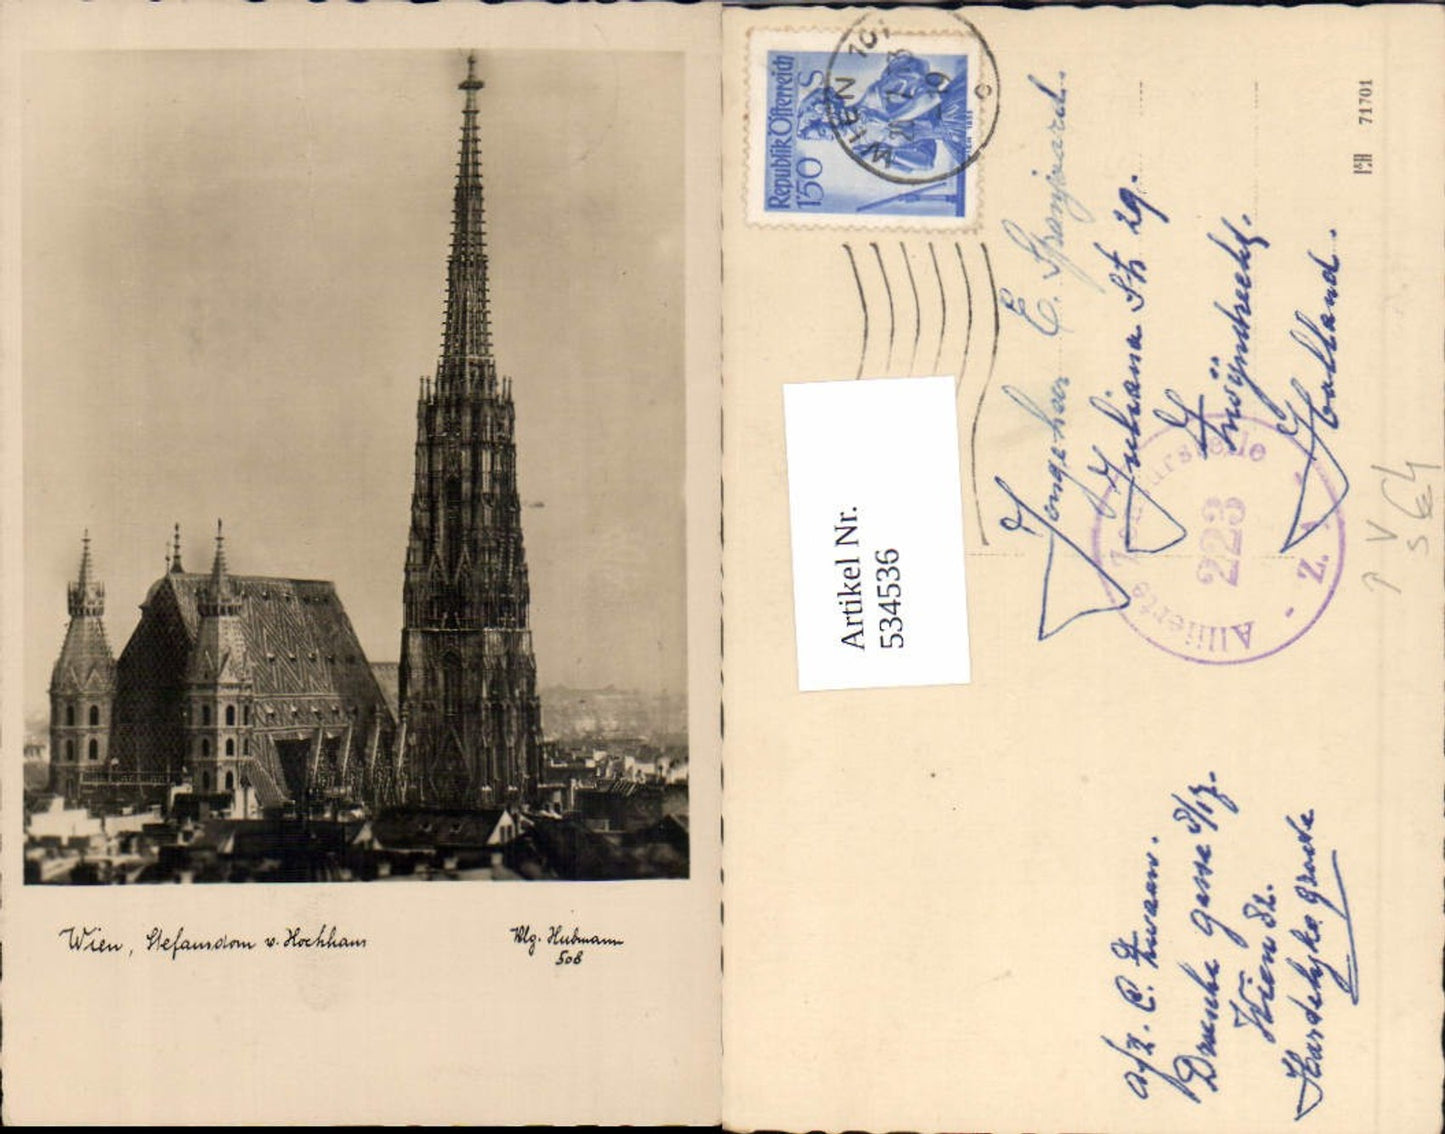 Wien, Stefansdom v. Hochhaus
Vlg. Hubmann
508
Republik Österreich
1'50 S
WIEN 101
Artikel Nr.
534536
Jongeheer E. Spanjaard.
Juliana Str 29.
Zwÿndrecht.
Holland.
Alliierte Zensurstelle
223
- Z. A -
71701
afz. C. Zwaan.
Gasse 8/17.
Wien 82.
Hartelyke groete